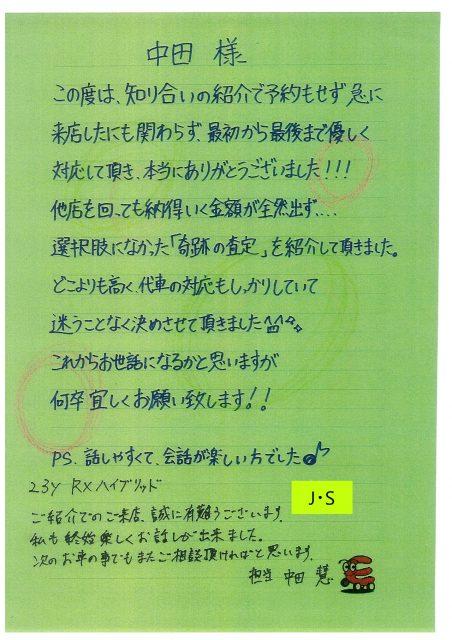 中田 様
この度は、知り合いの紹介で予約もせず急に
来店したにも関わらず、最初から最後まで優しく
対応して頂き、本当にありがとうございました!!!
他店を回っても納得いく金額が全然出ず....
選択肢になかった「奇跡の査定」を紹介して頂きました。
どこよりも高く、代車の対応もしっかりしていて
迷うことなく決めさせて頂きました^^
これからお世話になるかと思いますが
何卒宜しくお願い致します!!
PS. 話しやすくて、会話が楽しい方でした♪
23y RXハイブリッド
J・S
ご紹介でのご来店、誠に有難うございます。
私も終始楽しくお話しが出来ました。
次のお車の事でもまたご相談頂ければと思います。
担当 中田 慧